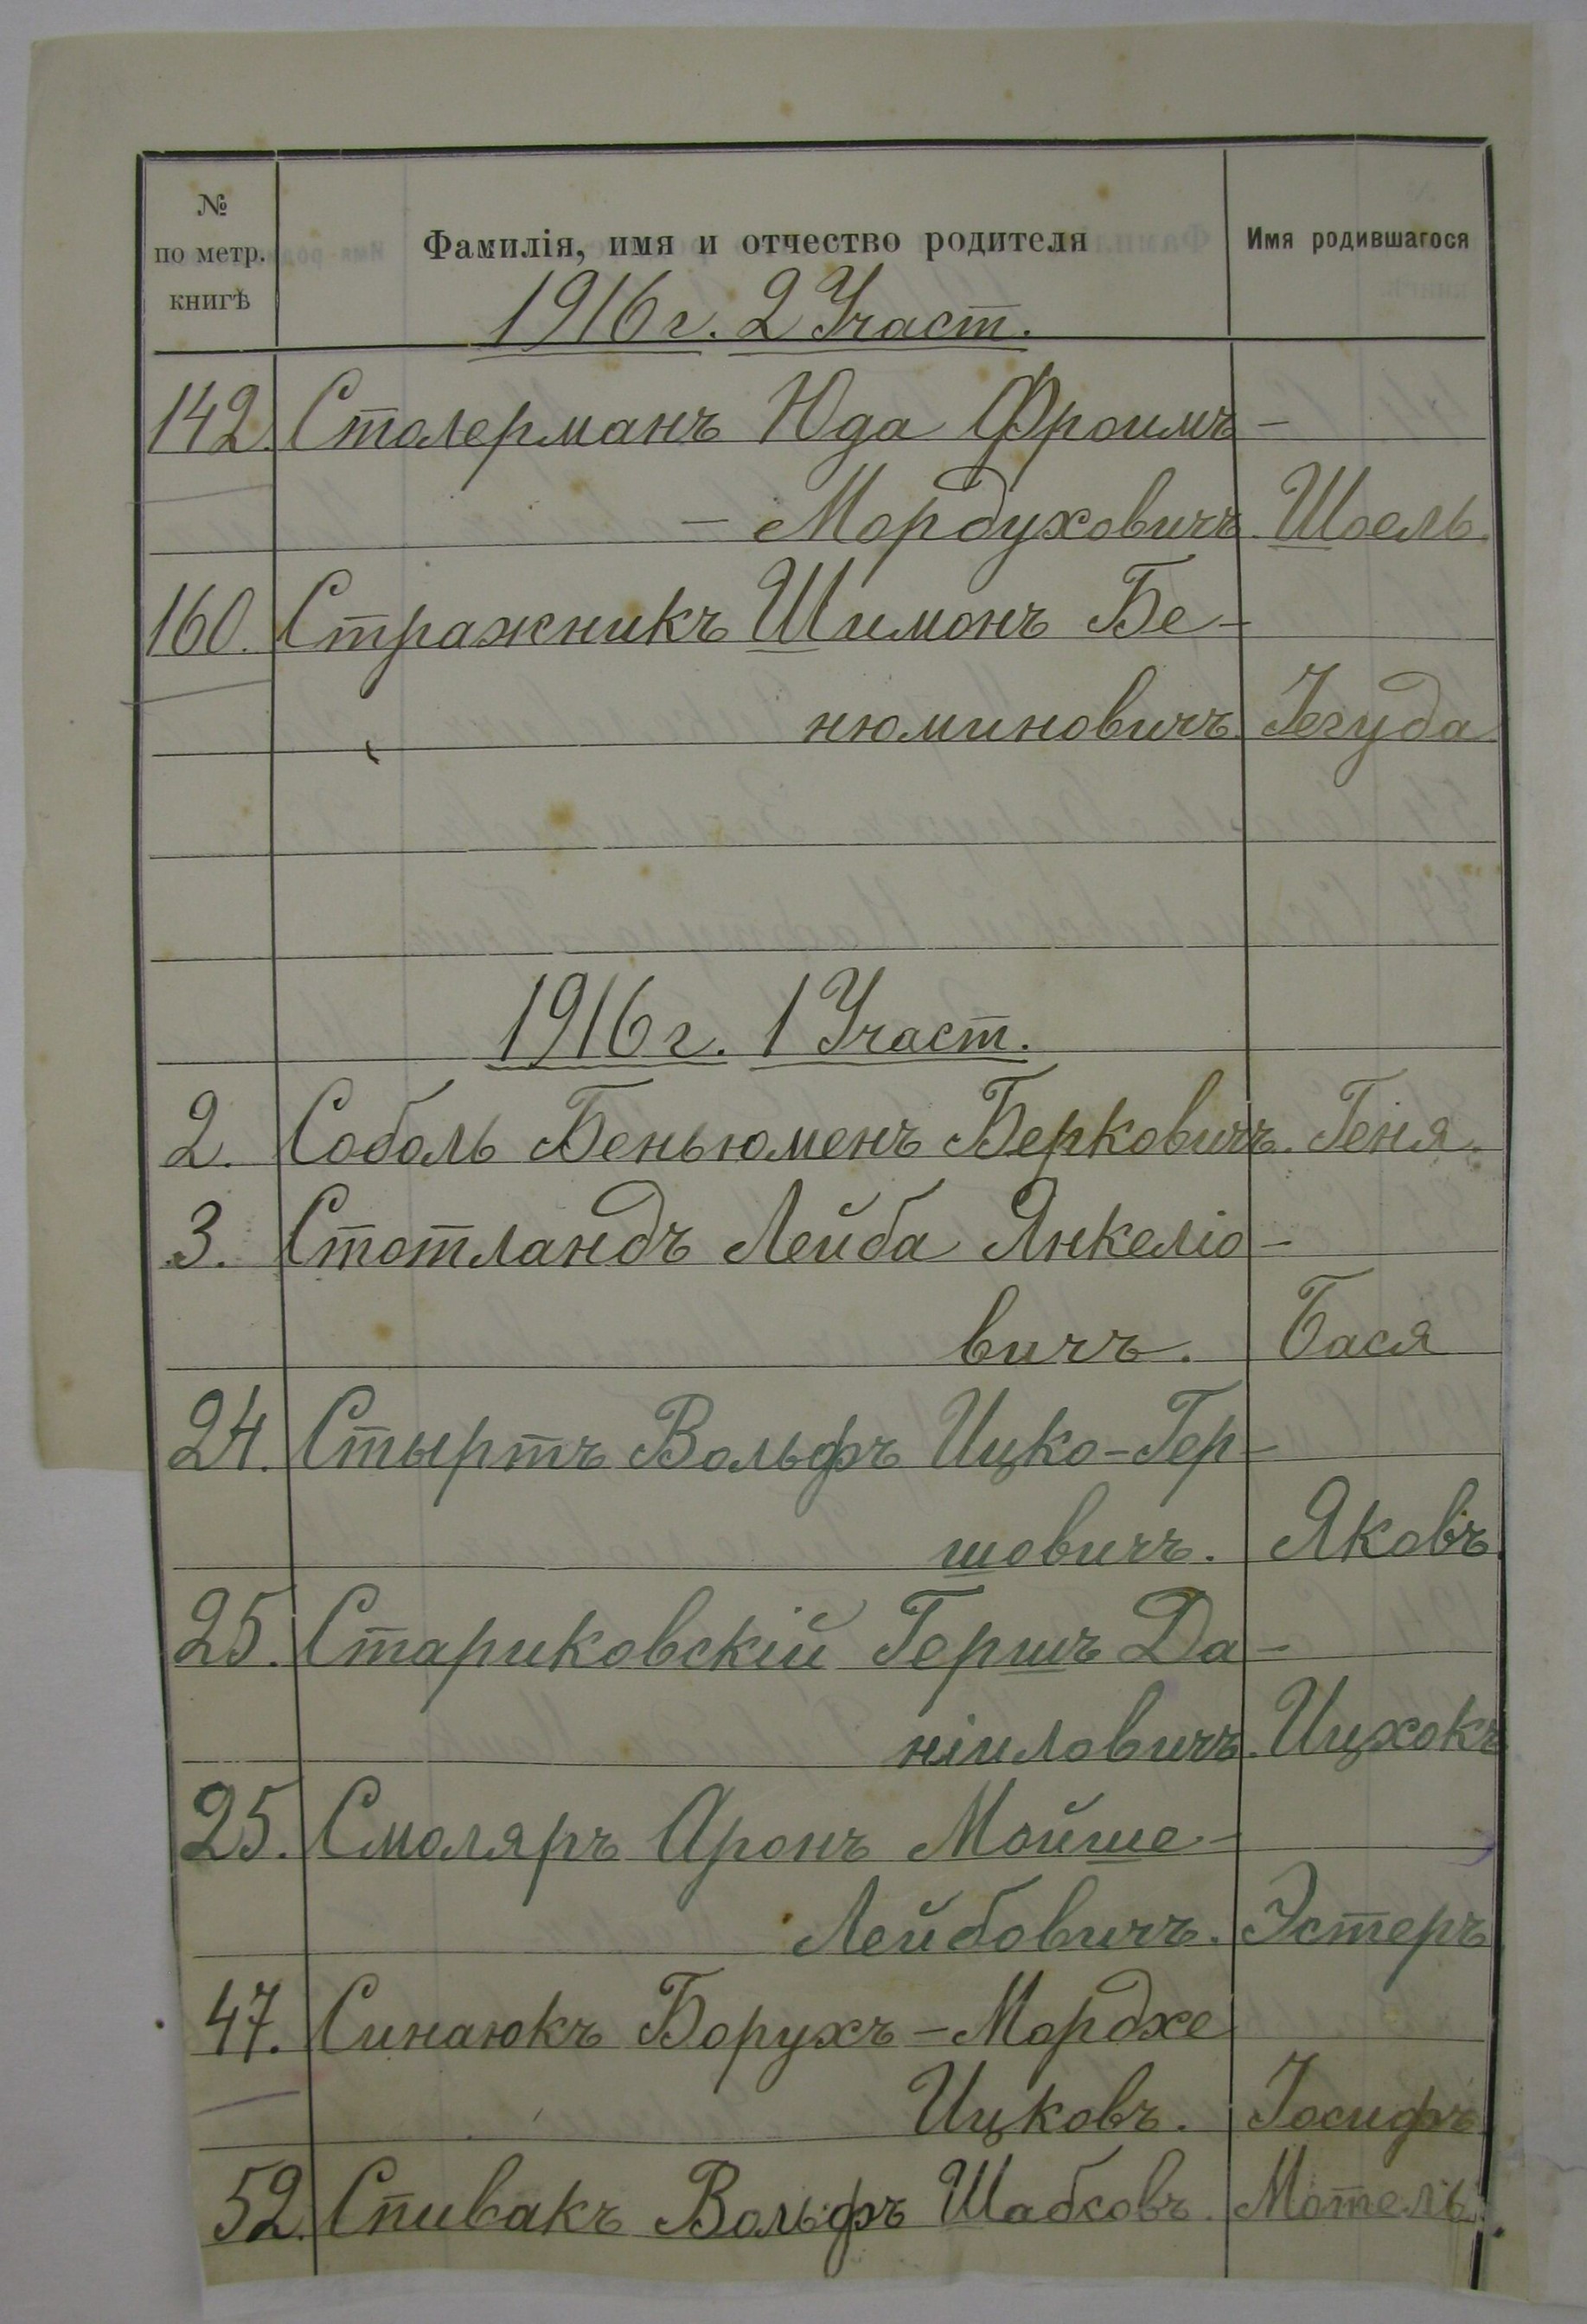 №
по метр.
книгѣ
Фамилія, имя и отчество родителя
Имя родившагося
1916 г. 2 Участ.
142. Столерманъ Юда Фроимъ-
- Мордуховичъ. Шоель.
160. Стражникъ Шимонъ Бе-
нюминовичъ. Іегуда
1916 г. 1 Участ.
2. Соболь Беньюменъ Берковичъ. Геня.
3. Стотландъ Лейба Янкеліо-
вичъ. Бася
24. Стыртъ Вольфъ Ицко-Гер-
шовичъ. Яковъ.
25. Стариковскій Гершъ Да-
ніиловичъ. Ицхокъ
25. Смоляръ Аронъ Мойше-
Лейбовичъ. Эстеръ
47. Синаюкъ Борухъ-Мордхе
Ицковъ. Іосифъ.
52. Спивакъ Вольфъ Шабсовъ. Мотель.